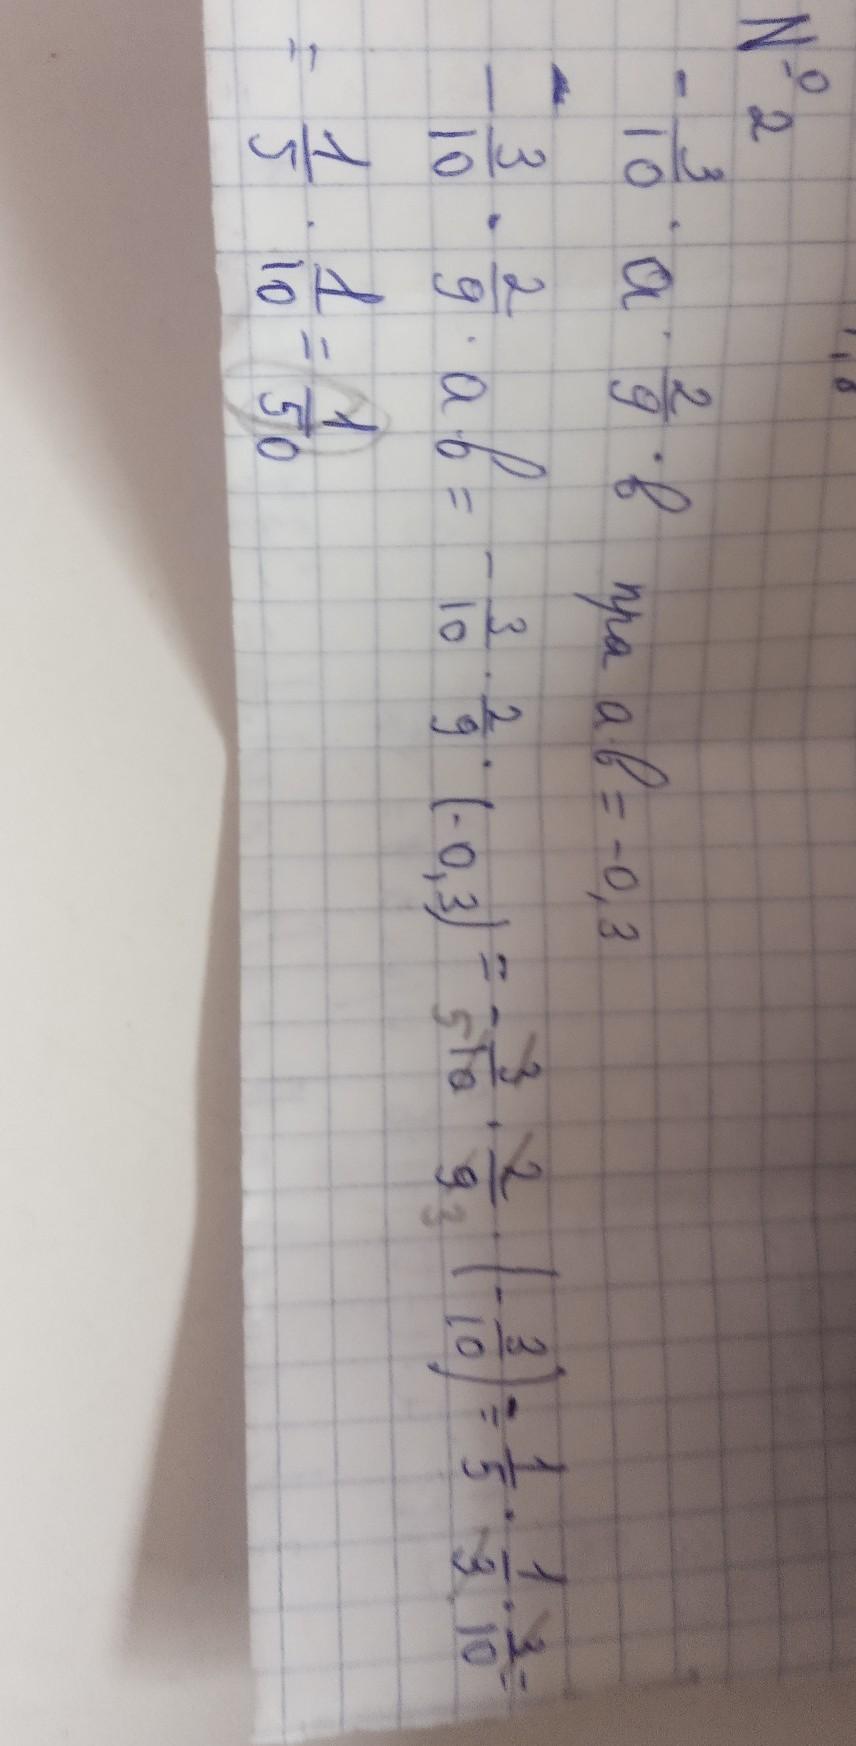 № 2
- 3/10 · a · 2/9 · в при aв = -0,3
- 3/10 · 2/9 · aв = - 3/10 · 2/9 · (-0,3) = - 3/10 · 2/9 · (- 3/10) = 1/5 · 1/3 · 3/10 =
5 3
= 1/5 · 1/10 = 1/50